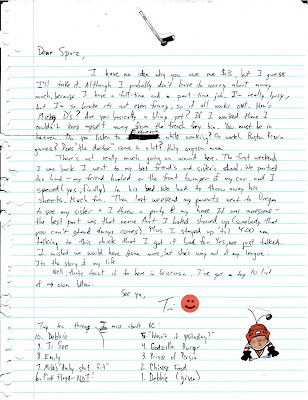 Dear Spaz,
I have no idea why you owe me $3, but I guess
I'll take it. Although I probably don't have to worry about money
much, because I have a full-time and a part-time job. I'm really busy,
but I'm so broke its not even funny, so it all works out. How's
Mickey D's? Are you basically a blimp yet? If I worked there I
couldn't keep myself away from the french fry bin. You must be in
heaven. Do you listen to while working? Or watch
games? Does "the doctor" come in a lot? Holy orgasm man.
There's not really much going on around here. The first weekend
I was back I went to my best friend's and sister's school. We partied
too hard and my friend hurled on the front bumper of my car and I
spewed (yes, finally) in his bed. We had to throw away his
sheets. Much fun. Then last weekend my parents went to Oregon
to see my sister & I threw a party @ my house. It was awesome -
the best part was that name that I hated showed up (somebody that
you can't stand always comes). Plus I stayed up 'til 4:00 am
talking to this chick that I got it bad for. Yes, we just talked.
I wished we would have done more, but she's way out of my league.
It's the story of my life.
Well, that's about it for here in Wisconsin. I've got a top 10 list
of my own below.
See ya,
Top ten things I miss about BC:
10. Debbie
9. Ji Soe
8. Emily
7. Mike's "daily shit fit"
6. Pink Floyd - NOT!
5. "Wasn't it yesterday?"
4. Godzilla Burger
3. Prince of Persia
2. Chinese Food
1. Debbie (given)